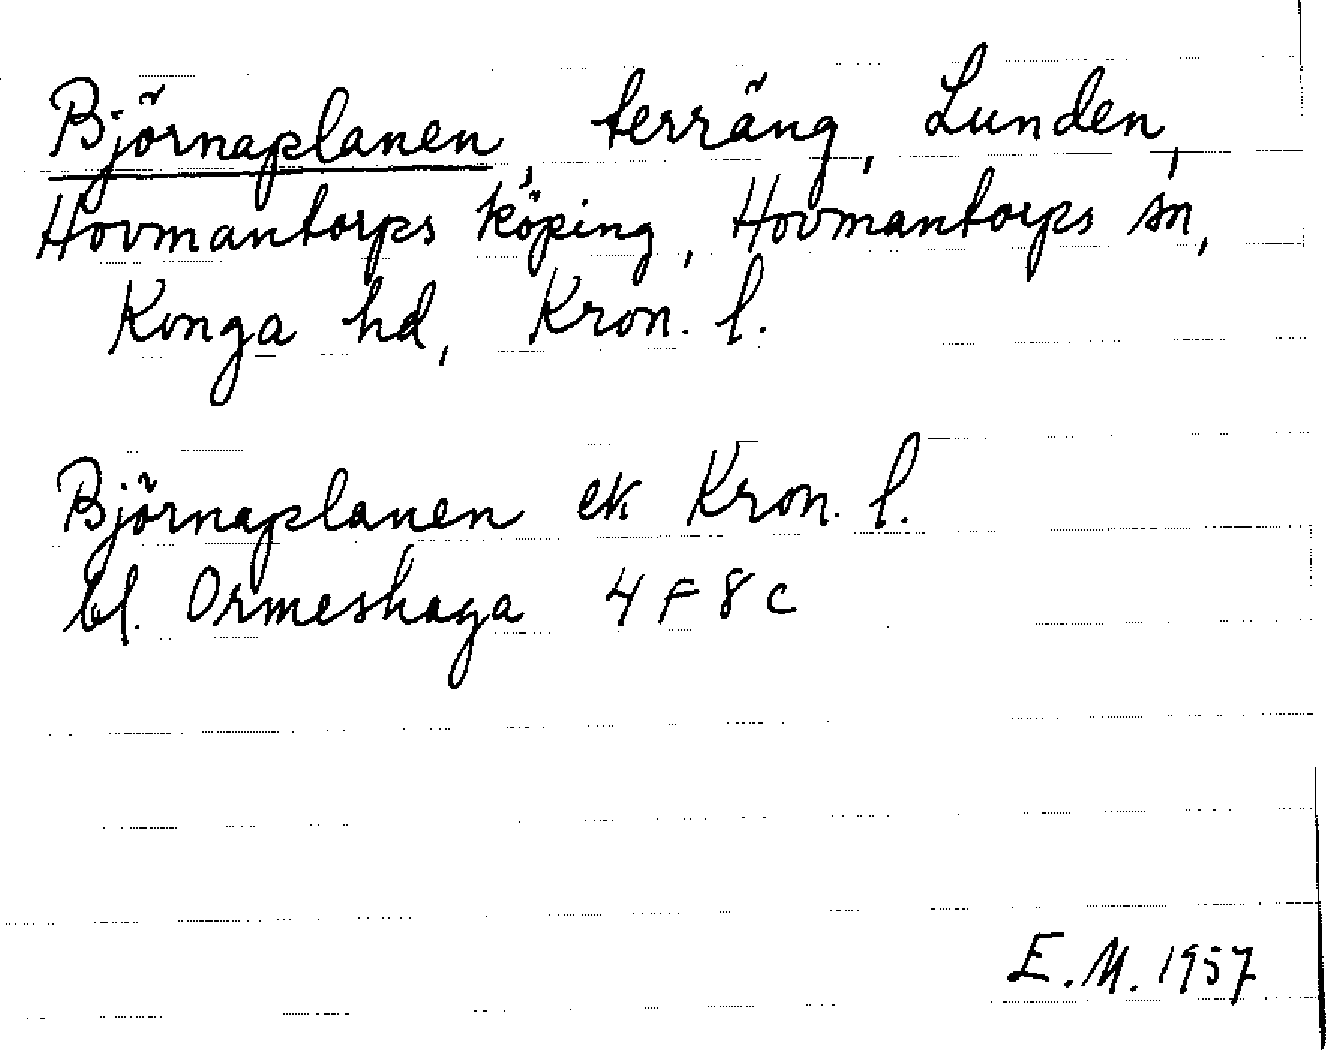 Björnaplanen, terräng, Lunden,
Hovmantorps köping, Hovmantorps sn,
Konga hd, Kron. l.
Björnaplanen ek Kron. l.
bl. Ormeshaga 4F8c
E.M. 1957